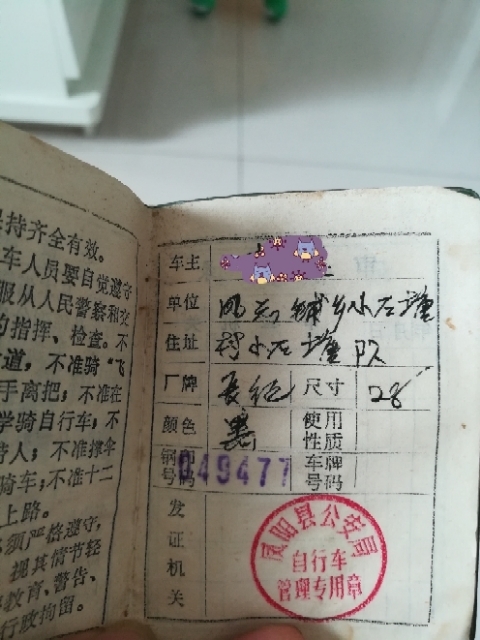 持齐全有效。
车人员要自觉遵守
服从人民警察和交
的指挥、检查。不
道，不准骑“飞
手离把；不准在
学骑自行车；不
人；不准撑伞
骑车；不准十二
上路。
须严格遵守，
视其情节轻
教育、警告、
行政拘留。
车主
单位 风 铺乡小石塘
住址 村小石塘队
厂牌 长征 尺寸 28
颜色 黑 使用性质
钢印号码 049477 车牌号码
发证机关
凤阳县公安局
自行车
管理专用章